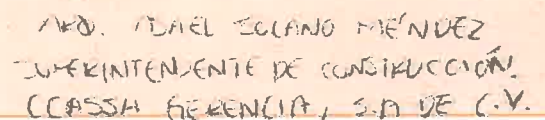 ARQ. ISAEL SOLANO MÉNDEZ
SUPERINTENDENTE DE CONSTRUCCIÓN.
CCASSA GERENCIA, S.A DE C.V.